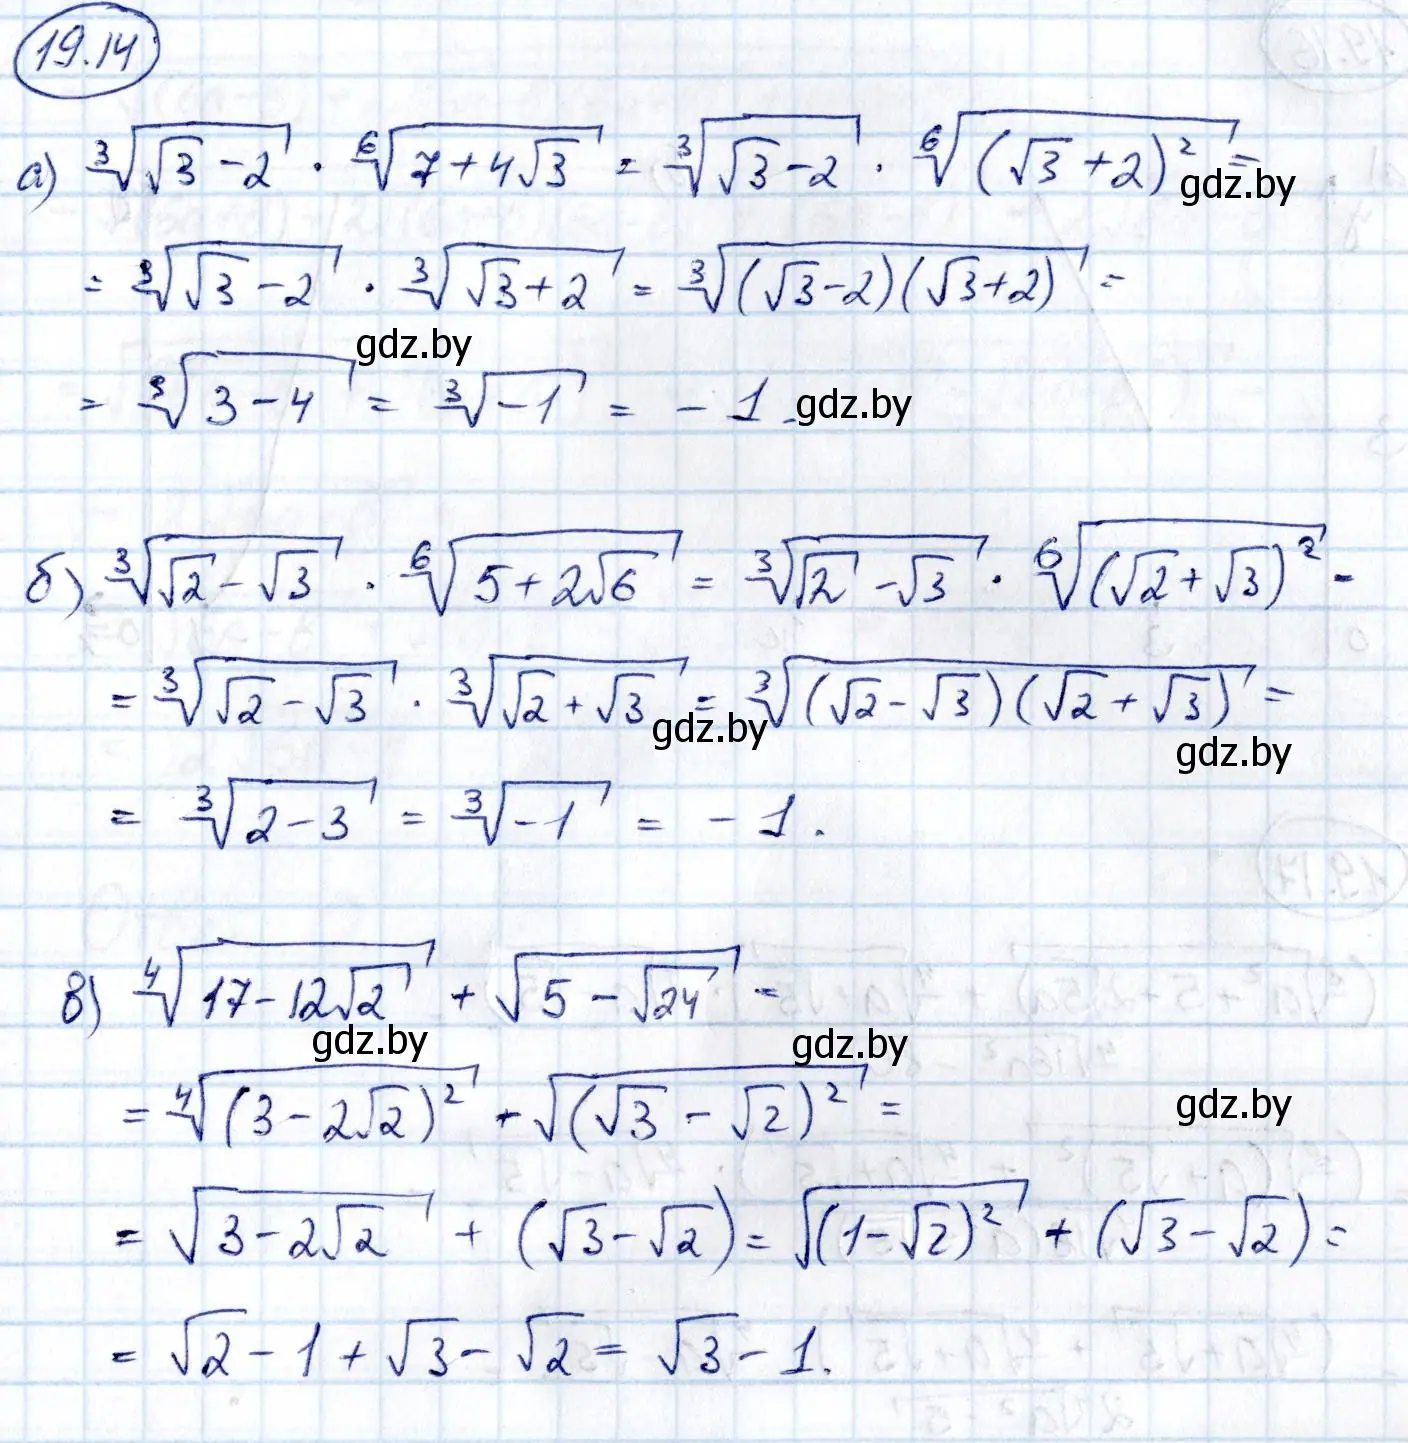 19.14
а) ∛(√3 − 2) · ⁶√(7 + 4√3) = ∛(√3 − 2) · ⁶√((√3 + 2)²) =
gdz.by
= ∛(√3 − 2) · ∛(√3 + 2) = ∛((√3 − 2)(√3 + 2)) =
gdz.by
= ∛(3 − 4) = ∛(−1) = − 1.
gdz.by
б) ∛(√2 − √3) · ⁶√(5 + 2√6) = ∛(√2 − √3) · ⁶√((√2 + √3)²) =
= ∛(√2 − √3) · ∛(√2 + √3) = ∛((√2 − √3)(√2 + √3)) =
gdz.by
gdz.by
= ∛(2 − 3) = ∛(−1) = − 1.
в) ⁴√(17 − 12√2) + √(5 − √24) =
gdz.by
gdz.by
= ⁴√((3 − 2√2)²) + √((√3 − √2)²) =
gdz.by
= √(3 − 2√2) + (√3 − √2) = √((1 − √2)²) + (√3 − √2) =
= √2 − 1 + √3 − √2 = √3 − 1.